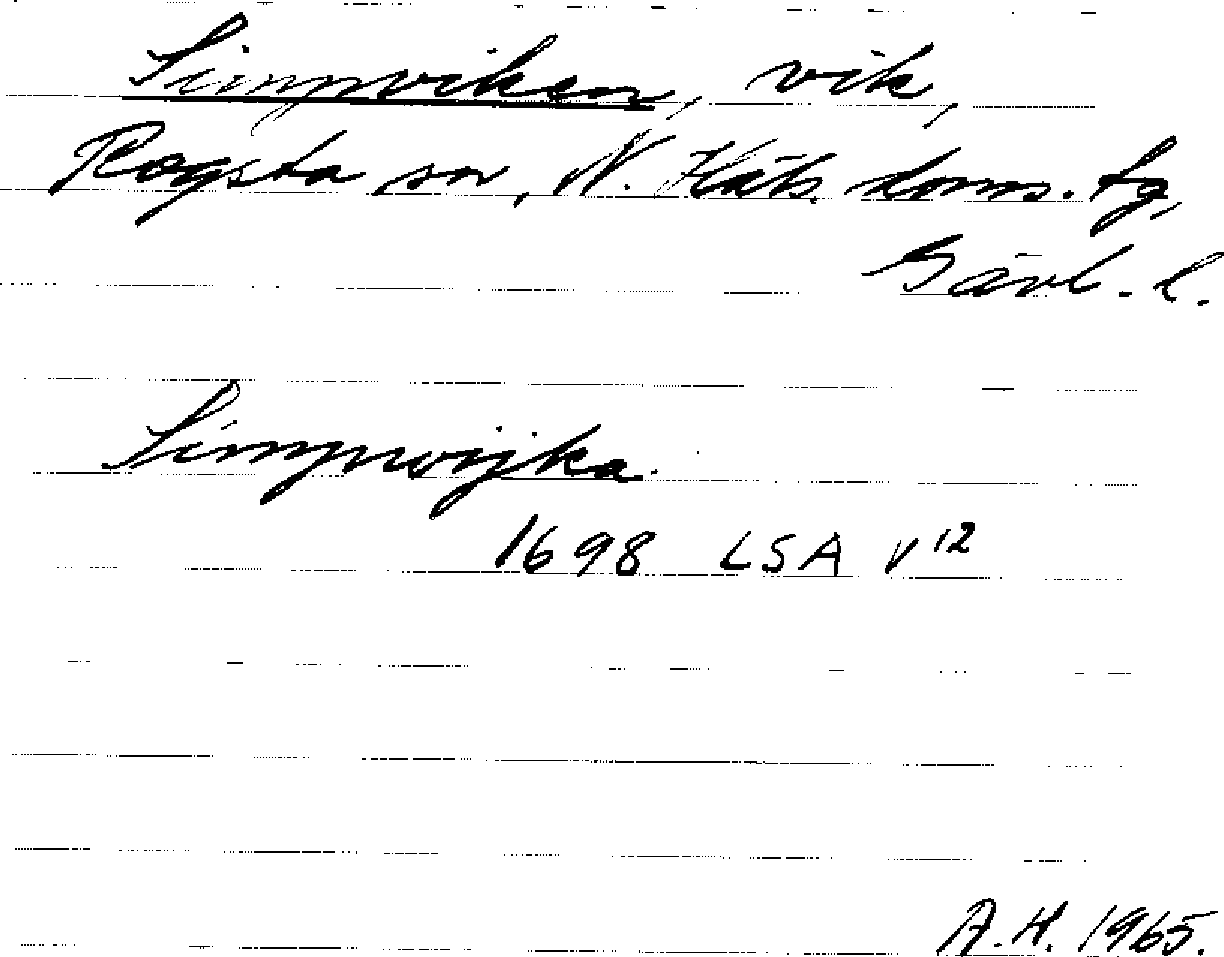 Simpviken, vik,
Rogsta sn, N. Häls. doms. tg,
Gävl. l.
Simpwijka
1698 LSA V 12
A.H. 1965.